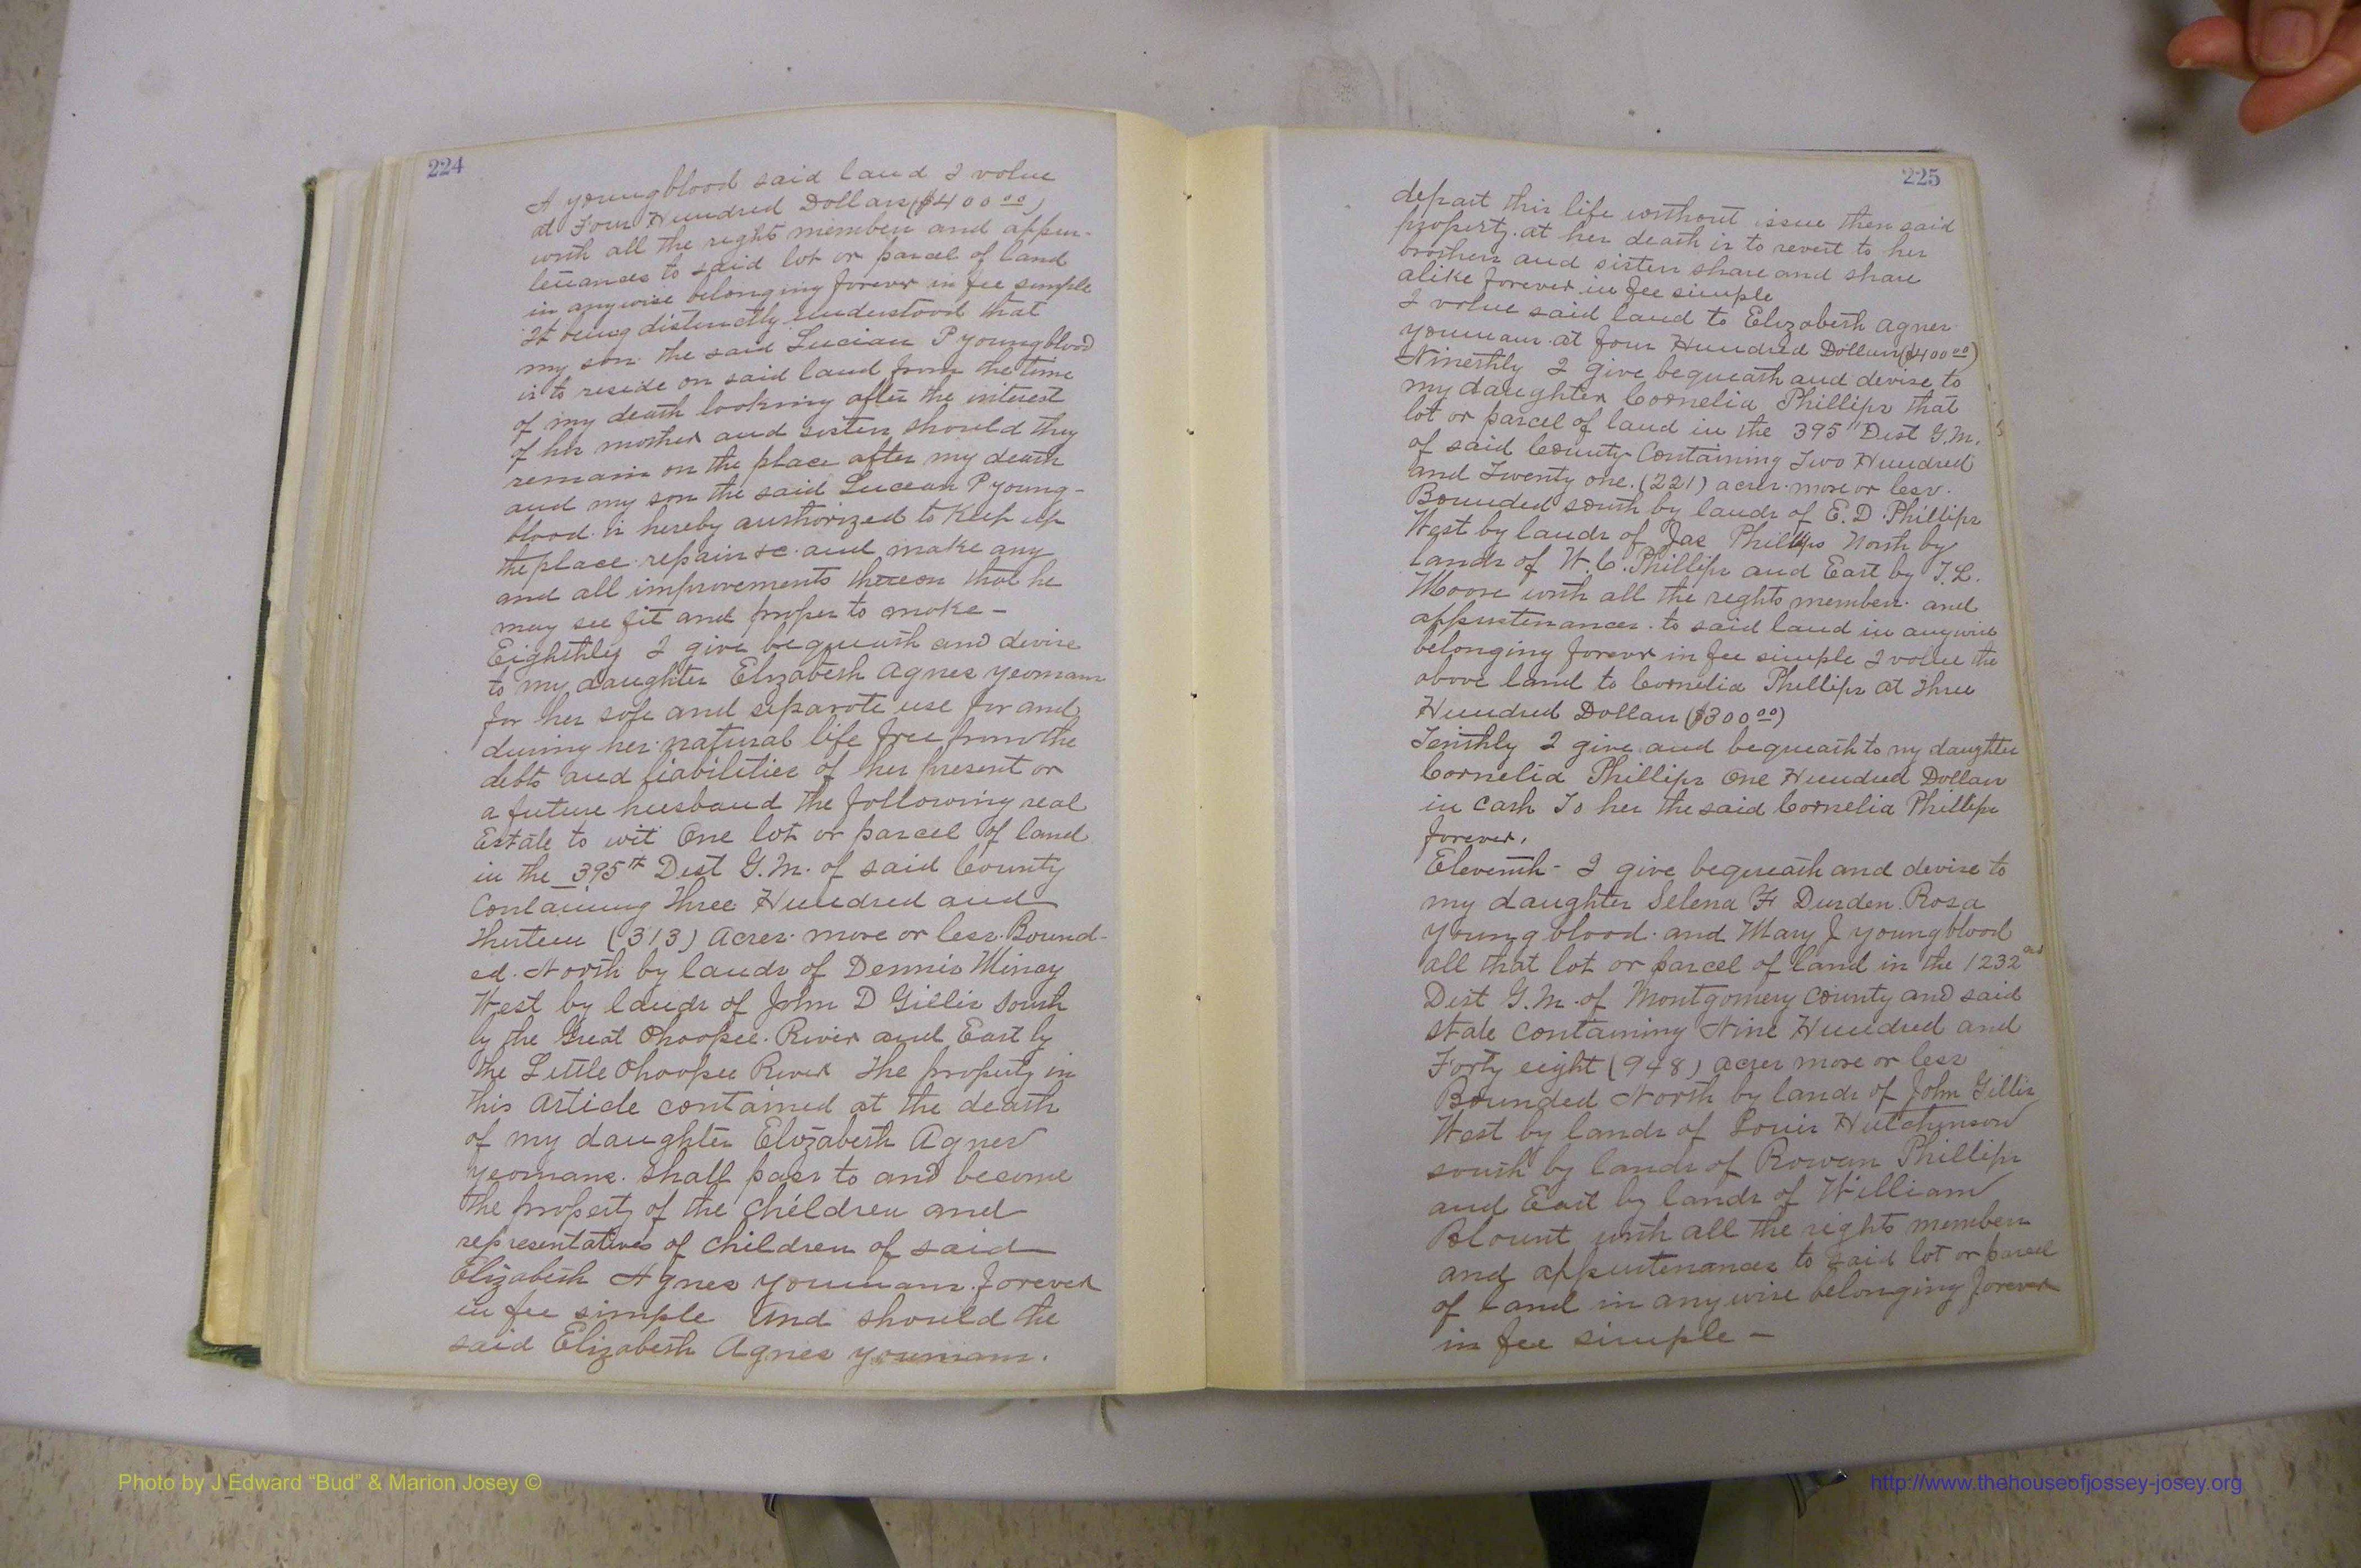 224
A youngblood said land I value
at Four Hundred Dollars ($400 00)
with all the rights members and appur-
tenances to said lot or parcel of land
in anywise belonging forever in fee simple
It being distinctly understood that
my son the said Lucian P youngblood
is to reside on said land from the time
of my death looking after the interest
of his mother and sisters should they
remain on the place after my death
and my son the said Lucean P young-
blood is hereby authorized to keep up
the place repairs &c and make any
and all improvements thereon that he
may see fit and proper to make -
Eighthly I give bequeath and devise
to my daughter Elizabeth Agnes yeomans
for her sole and separate use for and
during her natural life free from the
debts and liabilities of her present or
a future husband the following real
Estate to wit One lot or parcel of land
in the 395th Dist G.M. of said County
Containing Three Hundred and
thirteen (313) Acres more or less. Bound-
ed. North by lands of Dennis Mincy
West by lands of John D Gillis South
by the Great Ohoopee River and East by
the Little Ohoopee River The property in
this article contained at the death
of my daughter Elizabeth Agnes
yeomans. shall pass to and become
the property of the children and
representatives of children of said
Elizabeth Agnes youmans forever
in fee simple And should the
said Elizabeth Agnes youmans.
225
depart this life without issue then said
property. at her death is to revert to her
brothers and sisters share and share
alike forever in fee simple
I value said land to Elizabeth Agnes
youmans at four Hundred Dollars ($400 00)
Ninethly I give bequeath and devise to
my daughter Cornelia Phillips that
lot or parcel of land in the 395th Dist G.M.
of said County Containing Two Hundred
and Twenty one. (221) acres more or less.
Bounded south by lands of E.D. Phillips
West by lands of Jas Phillips North by
lands of W.C. Phillips and East by T.L.
Moore with all the rights members and
appurtenances to said land in anywise
belonging forever in fee simple I value the
above land to Cornelia Phillips at three
Hundred Dollars ($300 00)
Tenthly I give and bequeath to my daughter
Cornelia Phillips One Hundred Dollars
in cash To her the said Cornelia Phillips
forever.
Eleventh - I give bequeath and devise to
my daughter Selena F Durden Rosa
youngblood and Mary J youngblood
all that lot or parcel of land in the 1232nd
Dist G.M. of Montgomery County and said
state containing Nine Hundred and
Forty eight (948) acres more or less
Bounded North by lands of John Gillis
West by lands of Louis Hutchinson
south by lands of Rowan Phillips
and East by lands of William
Blount with all the rights members
and appurtenances to said lot or parcel
of land in anywise belonging forever
in fee simple -
Photo by J Edward “Bud” & Marion Josey ©
http://www.thehouseofjossey-josey.org